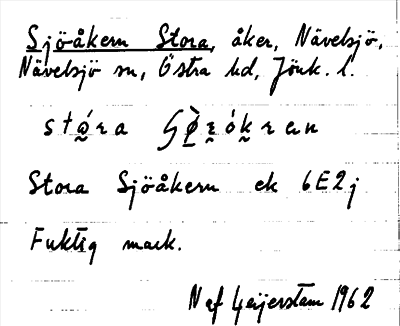 Sjöåkern Stora, åker, Nävelsjö,
Nävelsjö sn, Östra hd, Jönk. l.
stora
Stora Sjöåkern ek 6E2j
Fuktig mark.
N af Geijerstam 1962